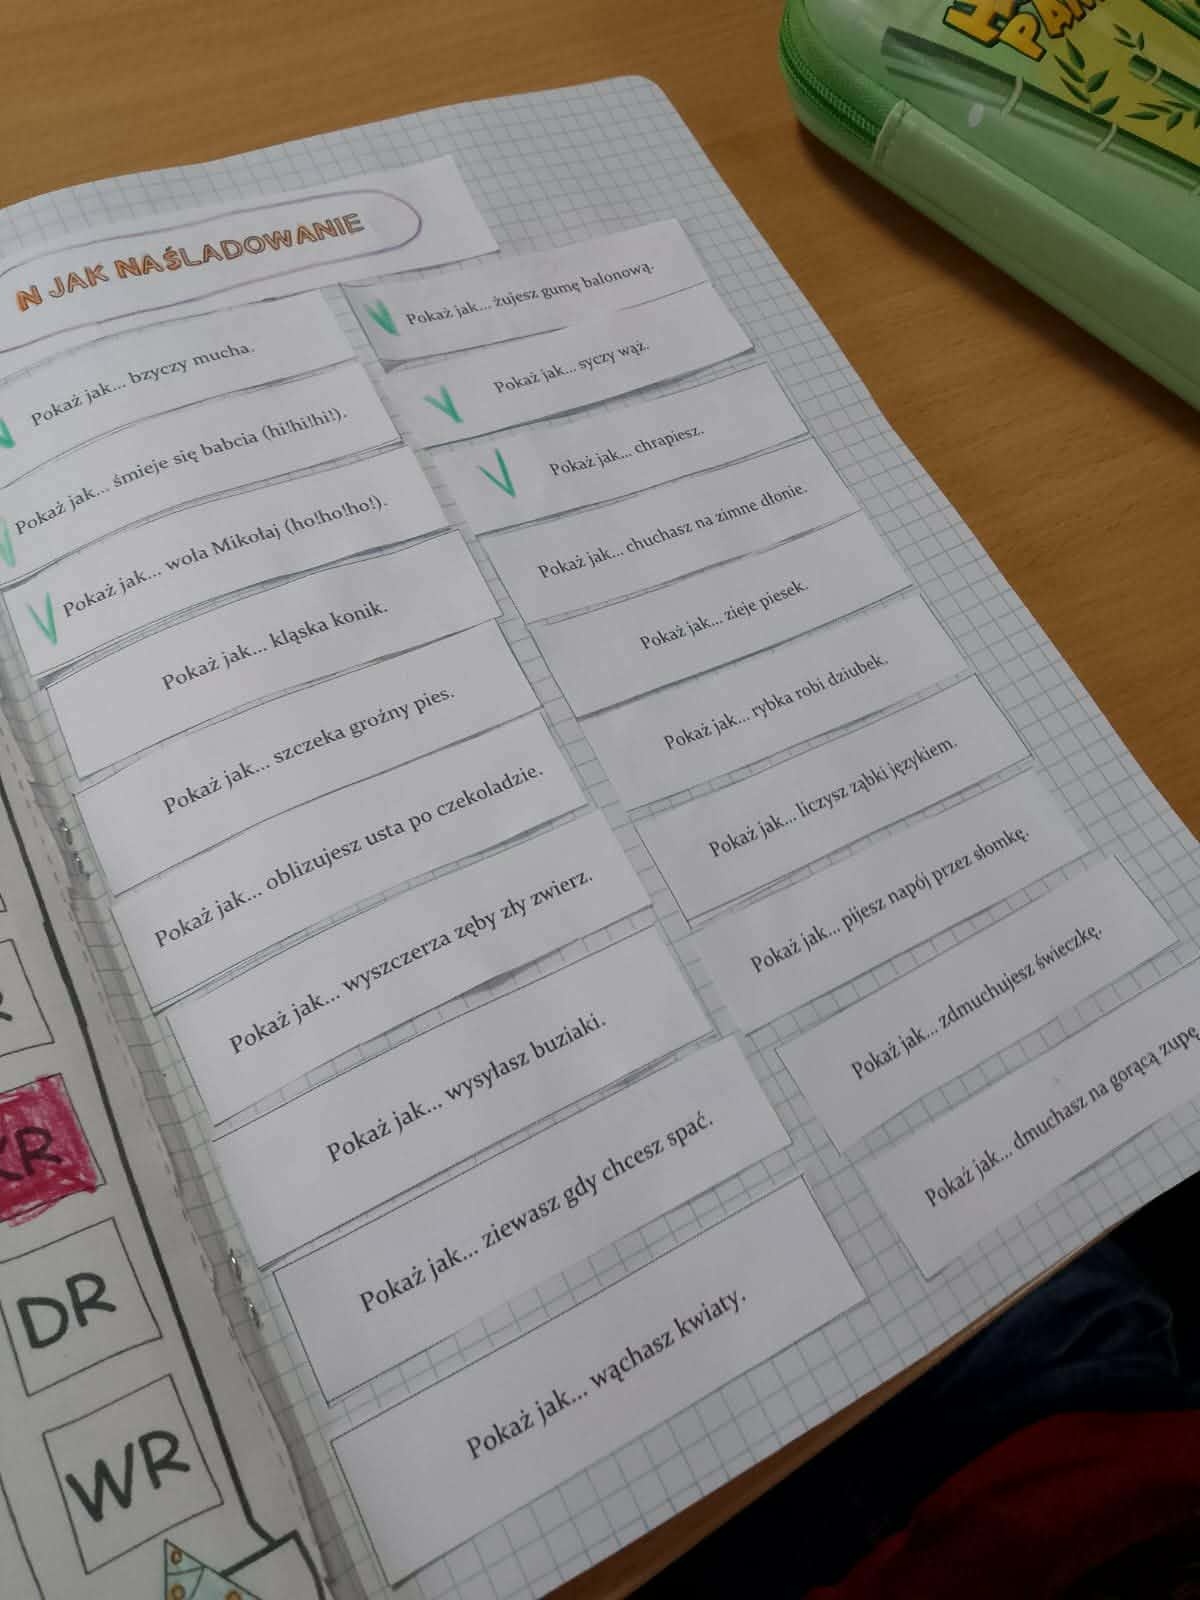 N JAK NAŚLADOWANIE
Pokaż jak... bzyczy mucha.
Pokaż jak... śmieje się babcia (hi!hi!hi!).
Pokaż jak... woła Mikołaj (ho!ho!ho!).
Pokaż jak... kląska konik.
Pokaż jak... szczeka groźny pies.
Pokaż jak... oblizujesz usta po czekoladzie.
Pokaż jak... wyszczerza zęby zły zwierz.
Pokaż jak... wysyłasz buziaki.
Pokaż jak... ziewasz gdy chcesz spać.
Pokaż jak... wąchasz kwiaty.
Pokaż jak... żujesz gumę balonową.
Pokaż jak... syczy wąż.
Pokaż jak... chrapiesz.
Pokaż jak... chuchasz na zimne dłonie.
Pokaż jak... zieje piesek.
Pokaż jak... rybka robi dziubek.
Pokaż jak... liczysz ząbki językiem.
Pokaż jak... pijesz napój przez słomkę.
Pokaż jak... zdmuchujesz świeczkę.
Pokaż jak... dmuchasz na gorącą zupę
KR
DR
WR